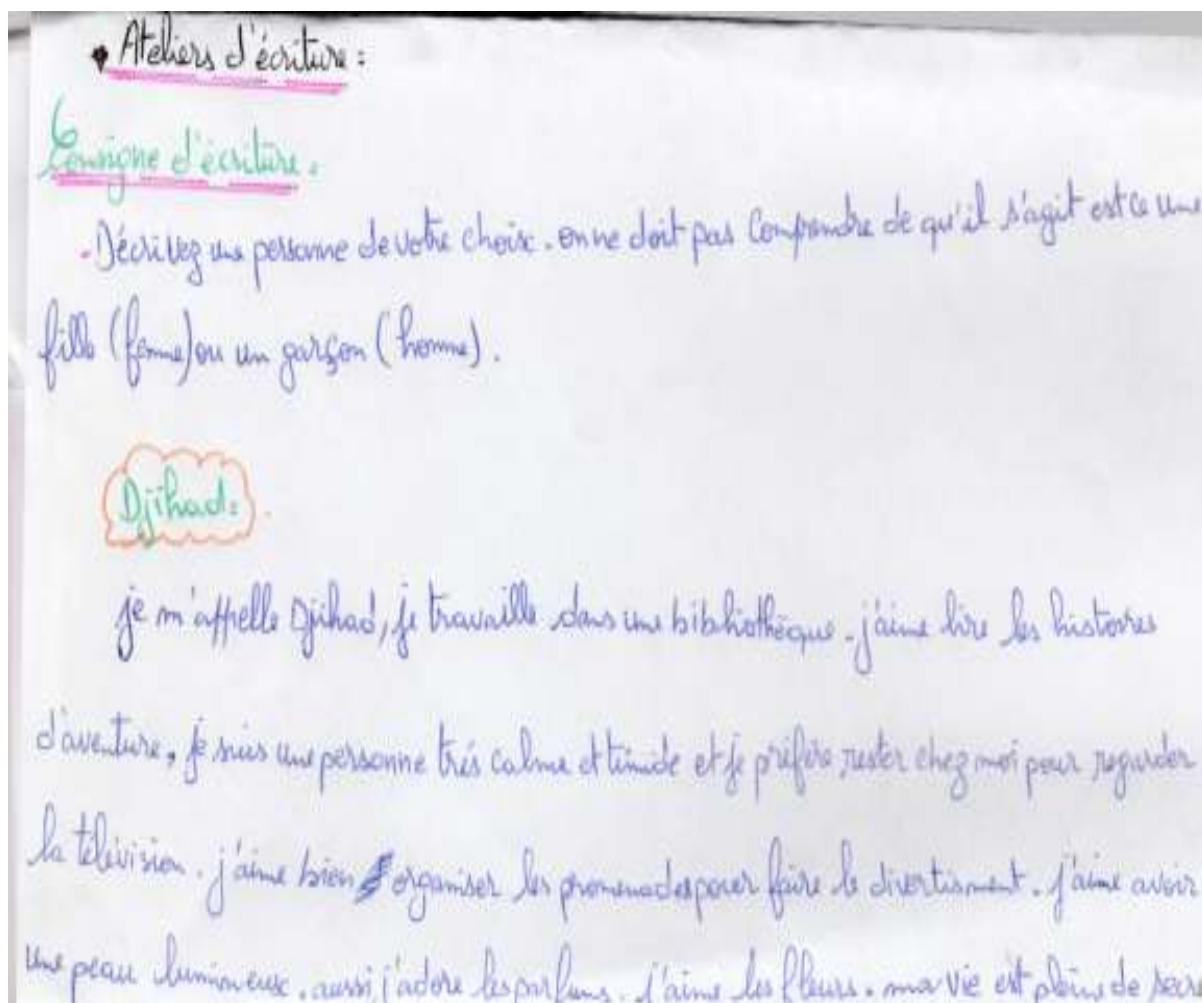 Ateliers d'écriture :
Consigne d'écriture :
- Décrivez une personne de votre choix. on ne doit pas comprendre de qu'il s'agit est ce une
fille (femme) ou un garçon (homme).
Djihad :
je m'appelle Djihad, je travaille dans une bibliothèque. j'aime lire les histoires
d'aventure, je suis une personne trés calme et timide et je préfère rester chez moi pour regarder
la télévision. j'aime bien organiser les promenades pour faire le divertisment. j'aime avoir
une peau lumineuse. aussi j'adore les parfums. j'aime les fleurs. ma vie est pleine de